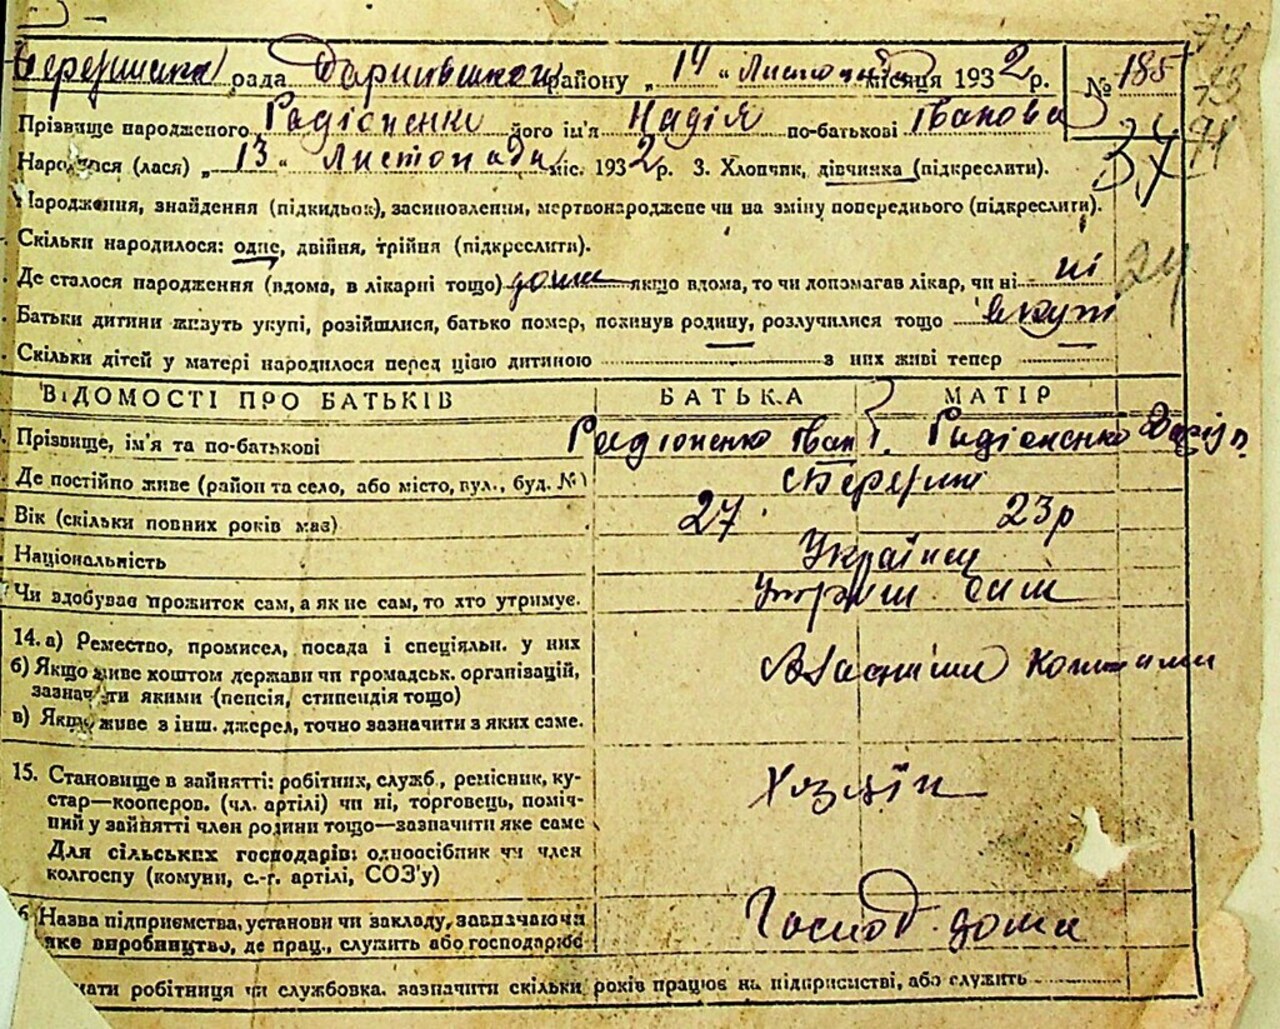 рада району „ 14 " Листопада місяця 1932 р. № 185
Прізвище народженого Радіоненко його ім'я Надія по-батькові Іванова
Народився (лася) „ 13 " Листопада міс. 1932 р. 3. Хлопчик, дівчинка (підкреслити).
Народження, знайдення (підкидьок), засиновлення, мертвонароджене чи на зміну попереднього (підкреслити).
Скільки народилося: одне, двійня, трійня (підкреслити).
Де сталося народження (вдома, в лікарні тощо) дома якщо вдома, то чи допомагав лікар, чи ні ні
24
Батьки дитини живуть укупі, розійшлися, батько помер, покинув родину, розлучилися тощо вкупі
Скільки дітей у матері народилося перед цією дитиною з них живі тепер
ВІДОМОСТІ ПРО БАТЬКІВ БАТЬКА МАТІР
Прізвище, ім'я та по-батькові Радіоненко Іван І. Радіоненко Дарія
Де постійно живе (район та село, або місто, вул., буд. №)
Вік (скільки повних років має) 27 23р
Національність Українці
Чи здобуває прожиток сам, а як не сам, то хто утримує.
14. а) Ремество, промисел, посада і спеціяльн. у них
б) Якщо живе коштом держави чи громадськ. організацій, Власніми коштами
зазначити якими (пенсія, стипендія тощо)
в) Якщо живе з інш. джерел, точно зазначити з яких саме.
15. Становище в зайнятті: робітник, служб., ремісник, ку- Хазяїн
стар—кооперов. (чл. артілі) чи ні, торговець, поміч-
ний у зайнятті член родини тощо—зазначити яке саме
Для сільських господарів: одноосібник чи член
колгоспу (комуни, с.-г. артілі, СОЗ'у)
Назва підприємства, установи чи закладу, зазначаючи Господ. дома
яке виробництво, де прац., служить або господарює
мати робітниця чи службовка. зазначити скільки років працює на підприємстві, або служить